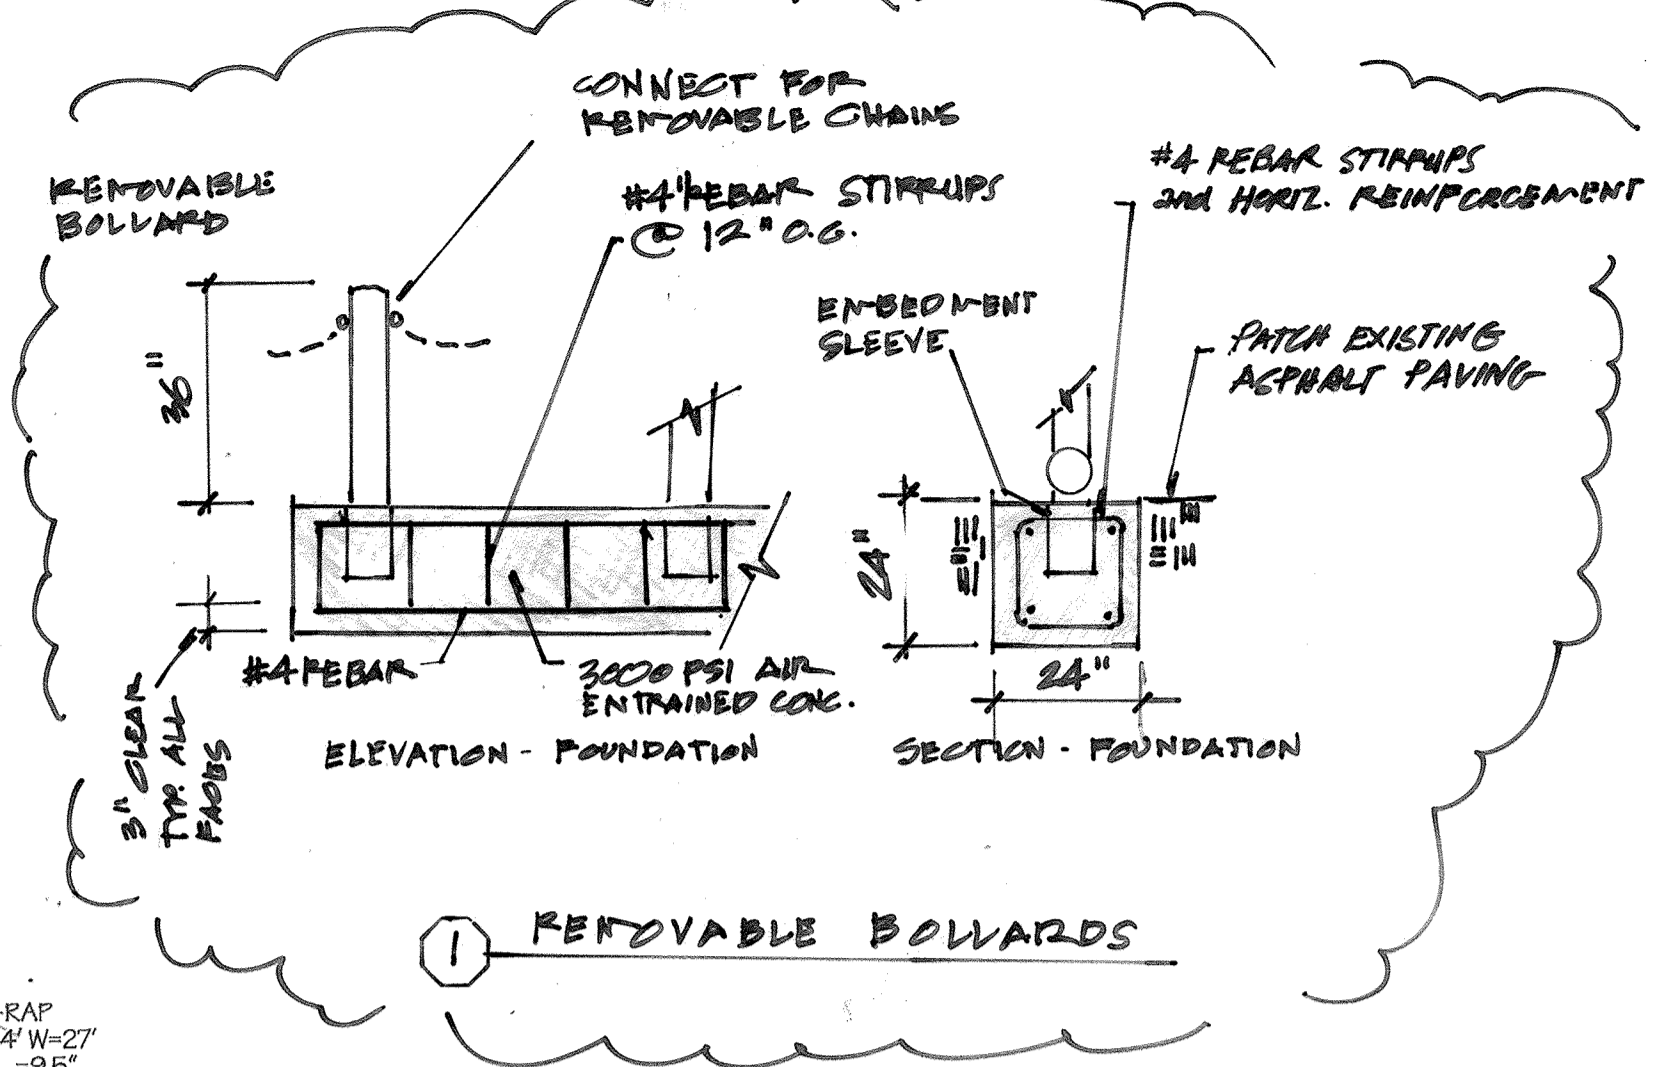 CONNECT FOR
REMOVABLE CHAINS
REMOVABLE
BOLLARD
#4 REBAR STIRRUPS
@ 12" O.C.
#4 REBAR STIRRUPS
and HORIZ. REINFORCEMENT
EMBEDMENT
SLEEVE
PATCH EXISTING
ASPHALT PAVING
36"
24"
#4 REBAR
3000 PSI AIR
ENTRAINED CONC.
24"
3" CLEAR
TYP. ALL
FACES
ELEVATION - FOUNDATION
SECTION - FOUNDATION
1
REMOVABLE BOLLARDS
-RAP
4' W=27'
=9.5"